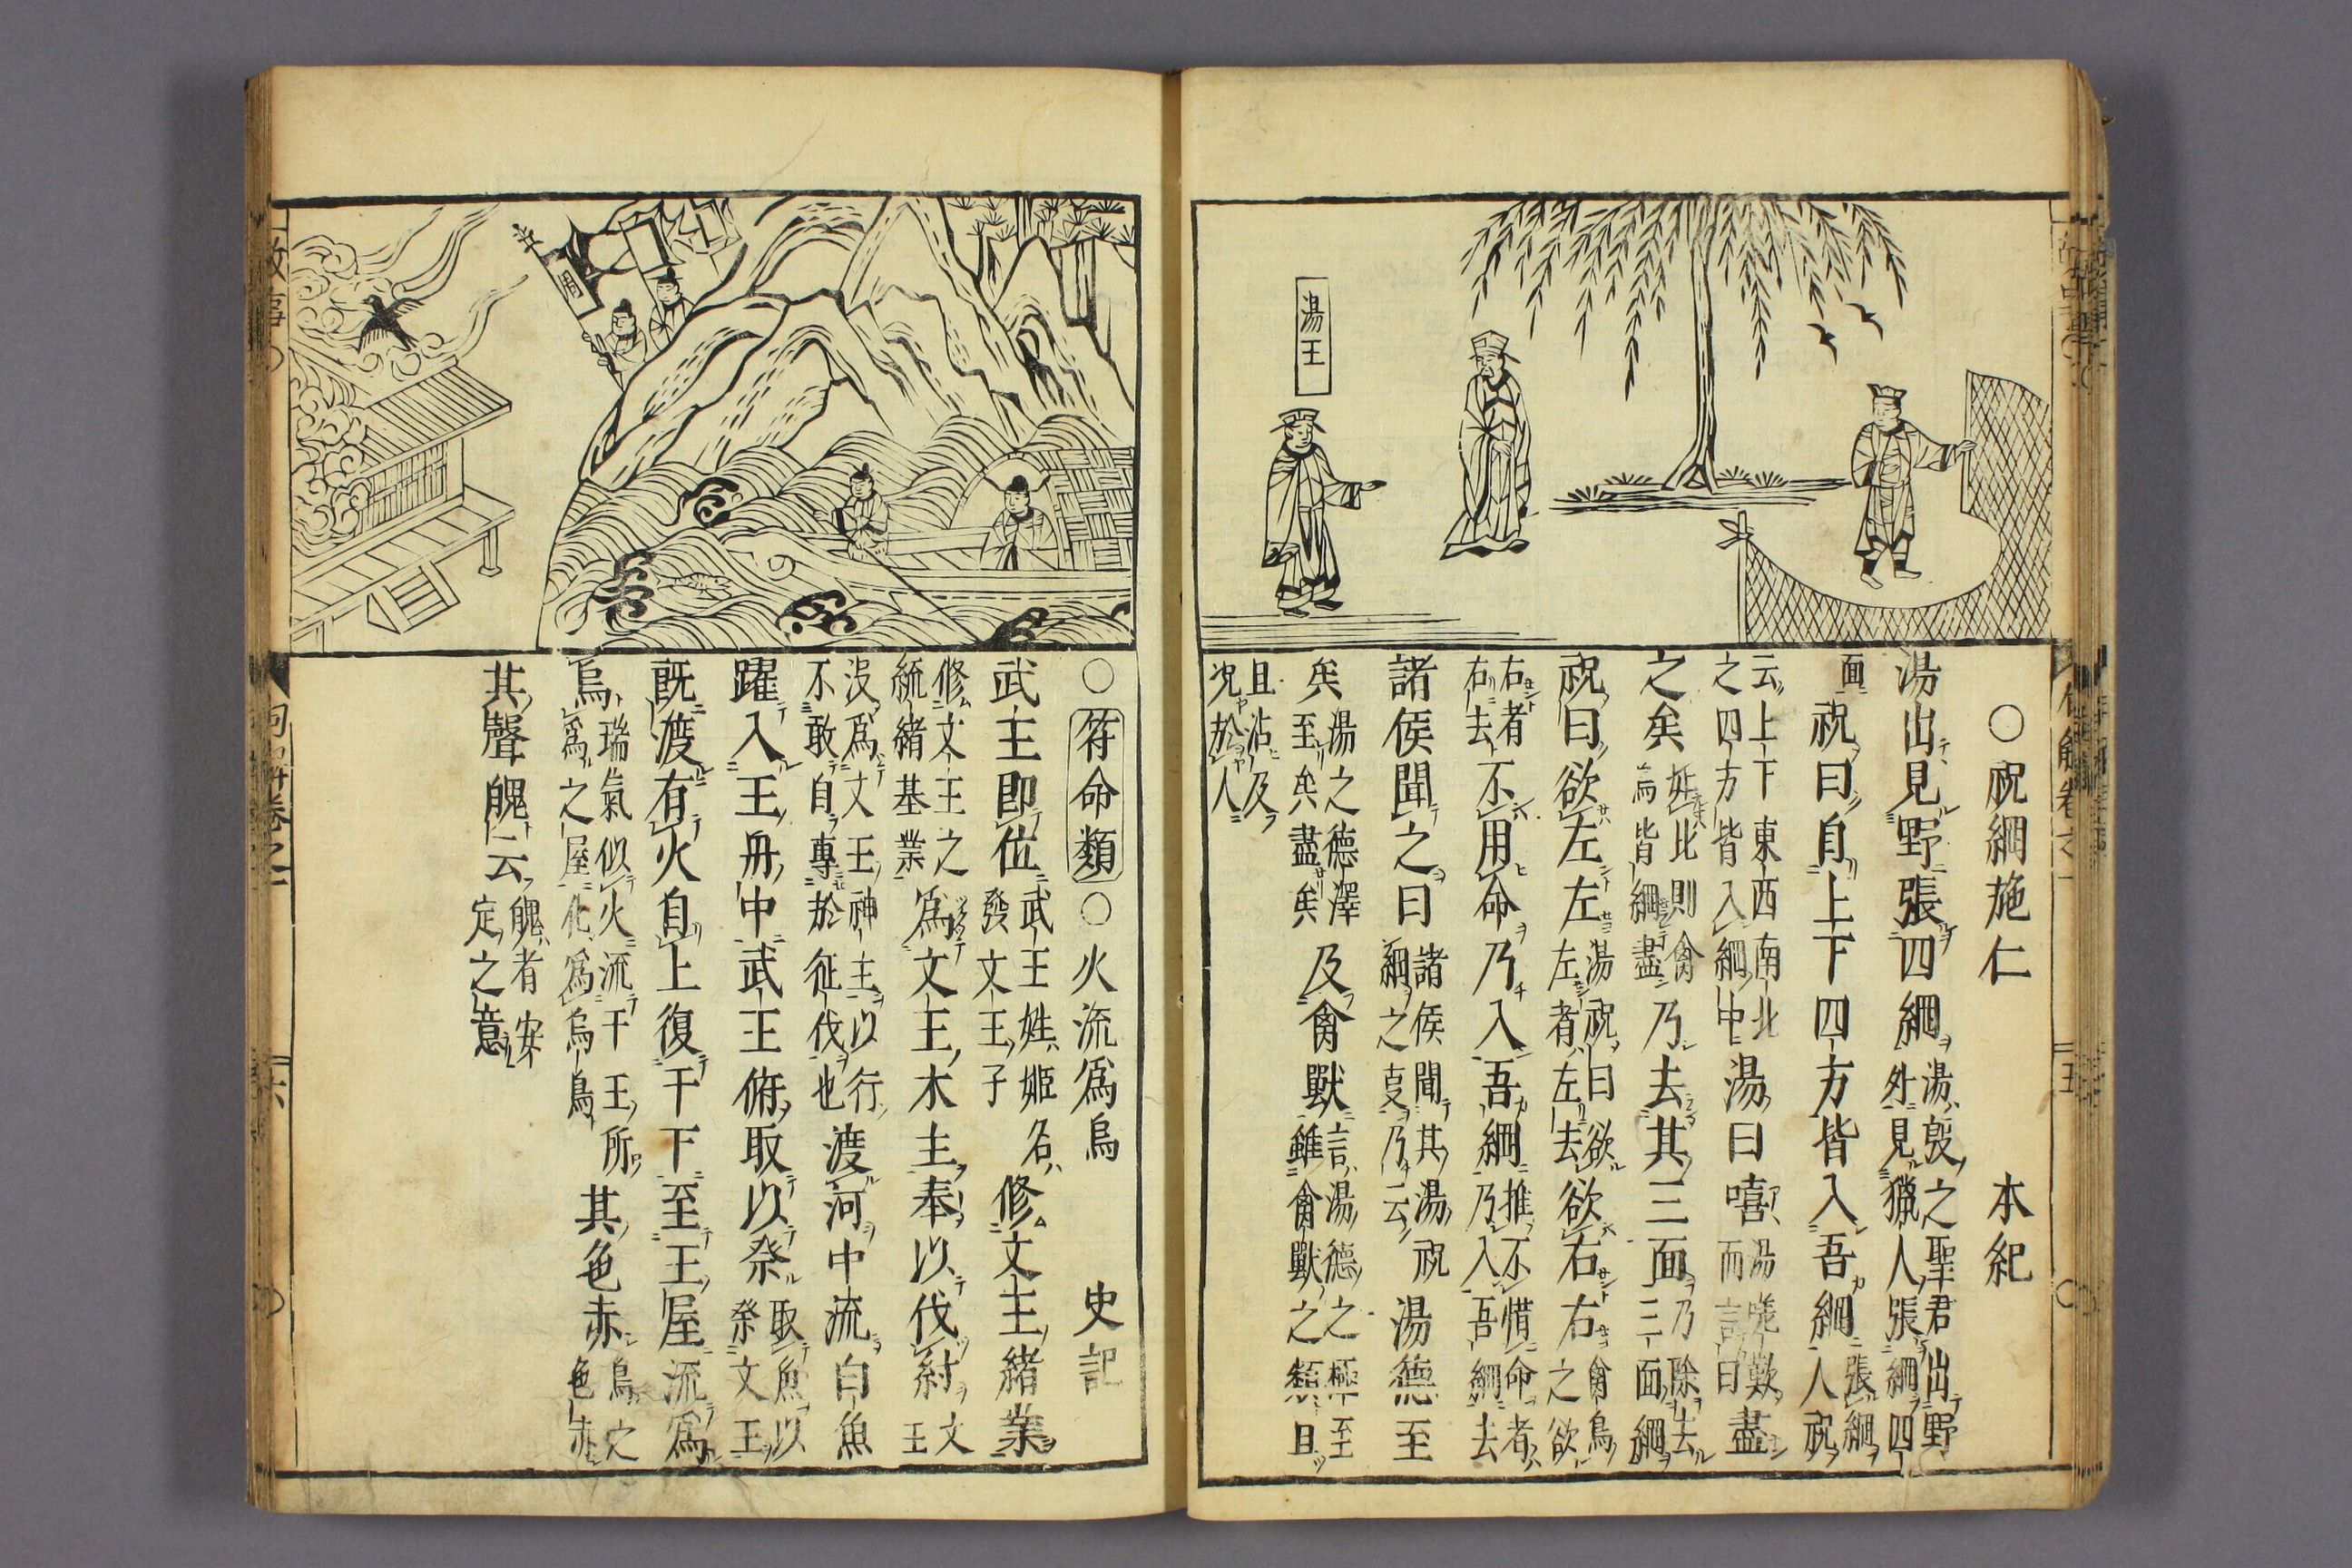 湯王
○祝網施仁　本紀
湯出見野張四網湯殷之聖君出野外見獵人張網四
面祝曰自上下四方皆入吾網張網人祝
云上下東西南北之四方皆入網中湯曰嘻湯歎而言曰盡
之矣此則禽皆網盡乃去其三面乃除去三面網
祝曰欲左左湯祝曰欲左者左去欲右右禽鳥之欲
右者右去不用命乃入吾網推不惜命者乃入吾網去
諸侯聞之曰諸侯聞其湯祝網之乃云湯德至
矣湯之德澤至矣盡矣及禽獸言湯德之極至雖禽獸之類且
且沾及况於人
周
○符命類○火流為烏　史記
武王即位武王姓姬名發文王子修文王緒業
修文王之統緒基業為文王木主奉以伐紂文王
没為文王神主以行不敢自專於征伐也渡河中流白魚
躍入王舟中武王俯取以祭取魚以祭文王
既渡有火自上復于下至王屋流為
烏瑞氣似火流于王所為之屋化為烏鳥其色赤烏之色赤
其聲魄云魄者安定之意